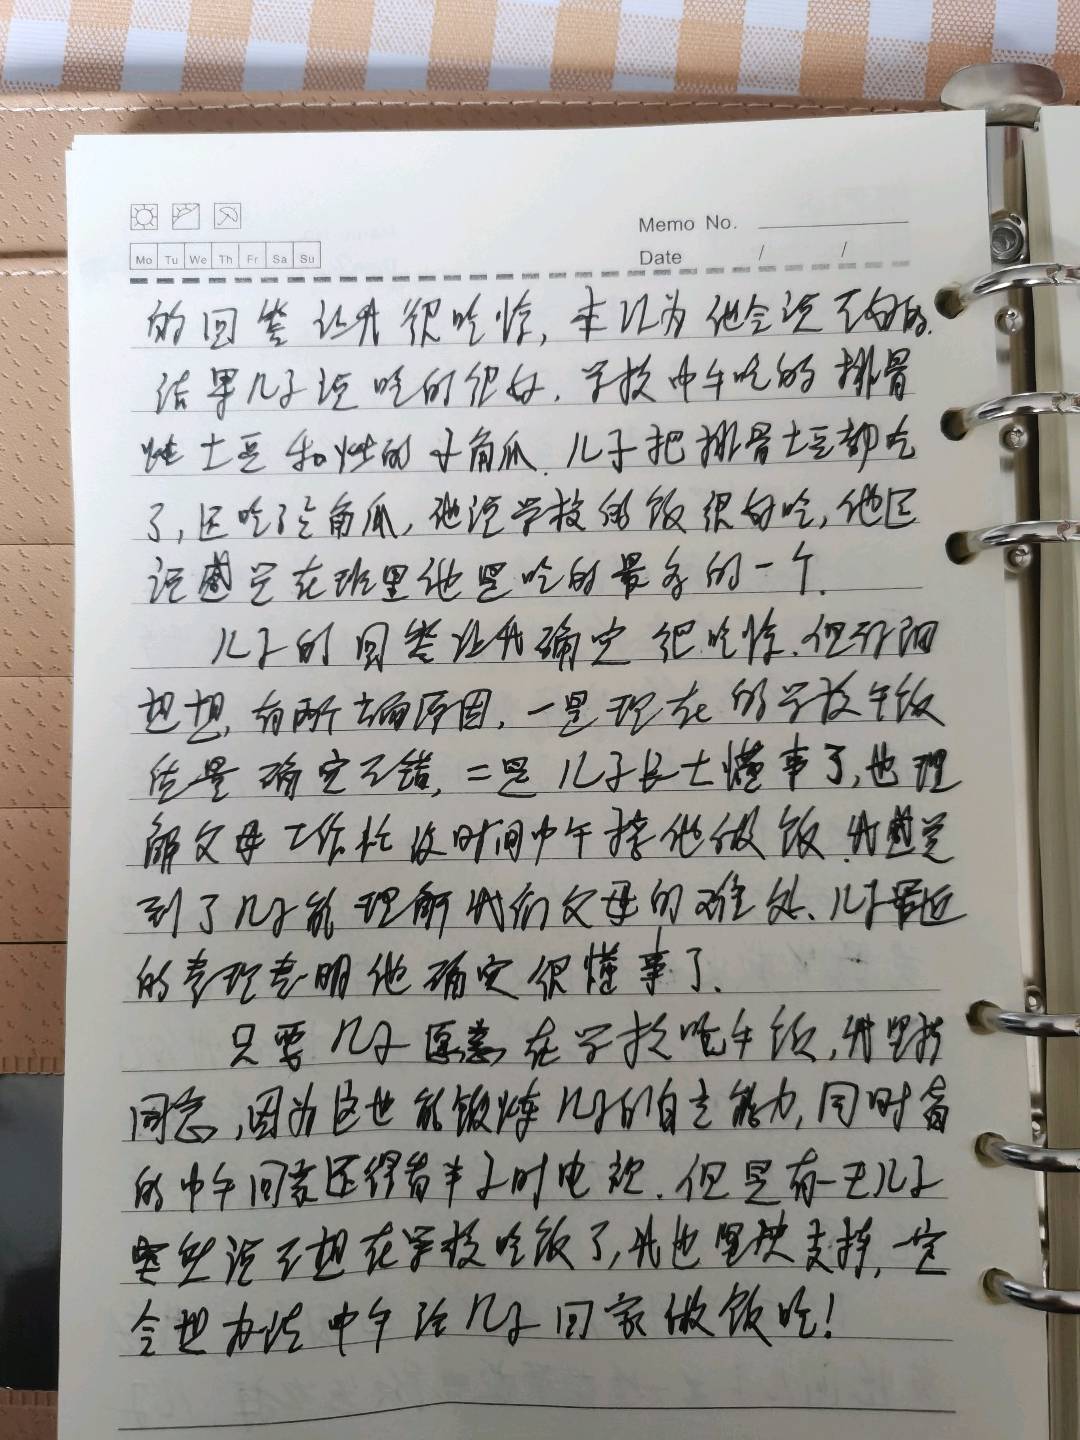 Memo No.
Mo Tu We Th Fr Sa Su
Date / /
的回答让我很吃惊,本以为他会说不好的.
结果儿子说吃的很好.学校中午吃的排骨
炖土豆和炒的 角瓜.儿子把排骨土豆都吃
了,还吃了 角瓜,他说学校的饭很好吃,他还
说感觉在班里他是吃的最多的一个.
儿子的回答让我确实很吃惊.但仔细
想想,有两个方面原因,一是现在的学校午饭
质量确实不错,二是儿子长大懂事了,也理
解父母工作忙没时间中午接他做饭.我感觉
到了儿子能理解我们父母的难处、儿子最近
的表现表明他确实很懂事了.
只要儿子愿意在学校吃午饭,我坚持
同意,因为这也能锻炼儿子的自主能力,同时省
的中午回家还得看半 时电视.但是有一天儿子
突然说不想在学校吃饭了,我也坚决支持,一定
会想办法中午给儿子回家做饭吃!